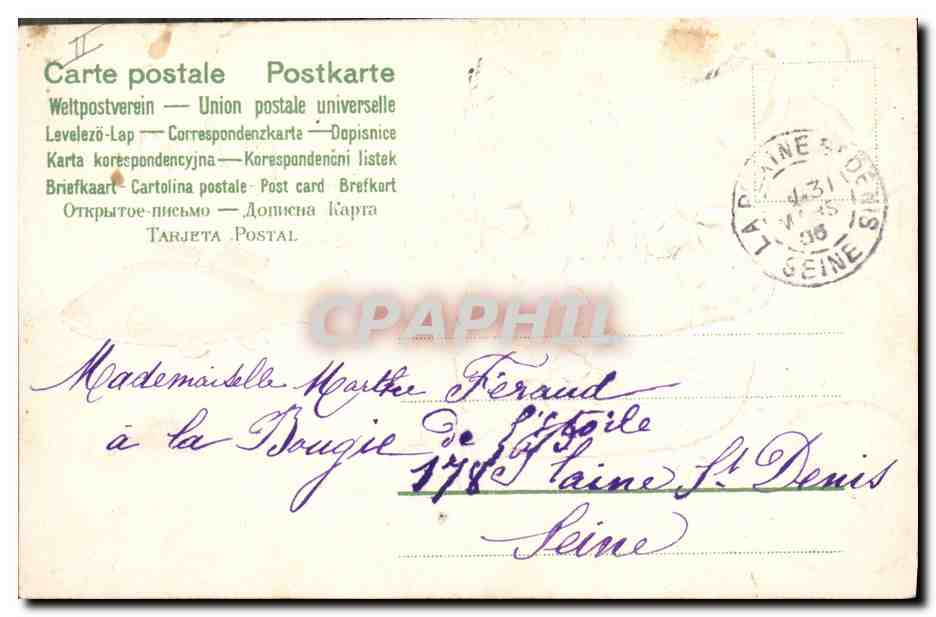 II
Carte postale Postkarte
Weltpostverein — Union postale universelle
Levelező-Lap — Correspondenzkarte — Dopisnice
Karta korespondencyjna — Korespondenčni listek
Briefkaart - Cartolina postale - Post card Brefkort
Открытое-письмо — Дописна Карта
TARJETA POSTAL
LA PLAINE ST DENIS
31
MARS
06
SEINE
CPAPHIL
Mademoiselle Marthe Féraud
à la Bougie de l'étoile
178 Plaine St Denis
Seine